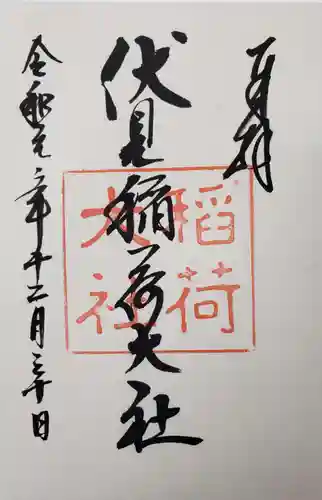 奉拝
伏見稲荷大社
稲荷
大社
令和元年十二月三十日